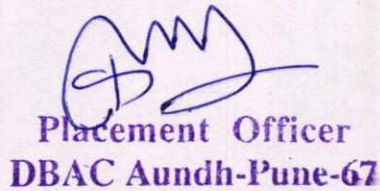 Placement Officer
DBAC Aundh-Pune-67